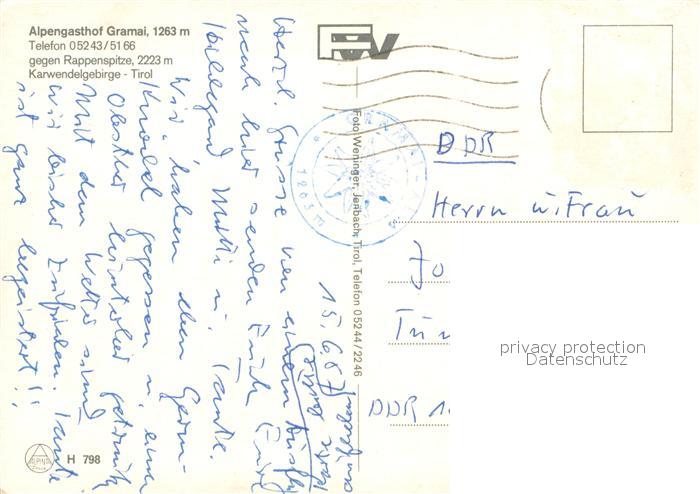 Alpengasthof Gramai, 1263 m
Telefon 05243/5166
gegen Rappenspitze, 2223 m
Karwendelgebirge - Tirol
15.6.87
Herzl. Grüsse von einem Ausflug
nach hier senden Euch Eure
Hildegard, Mutti u. Tante.
Wir haben eben Germ-
Knödel gegessen u. einen
Obstler hinterher getrunken
Mit dem Wetter sind
wir bisher zufrieden. Tante
ist ganz begeistert!!
Foto Weninger, Jenbach, Tirol, Telefon 05244/2246
1263 m
DDR
Herrn u. Frau
Jo
DDR
privacy protection
Datenschutz
ALPINA
H 798